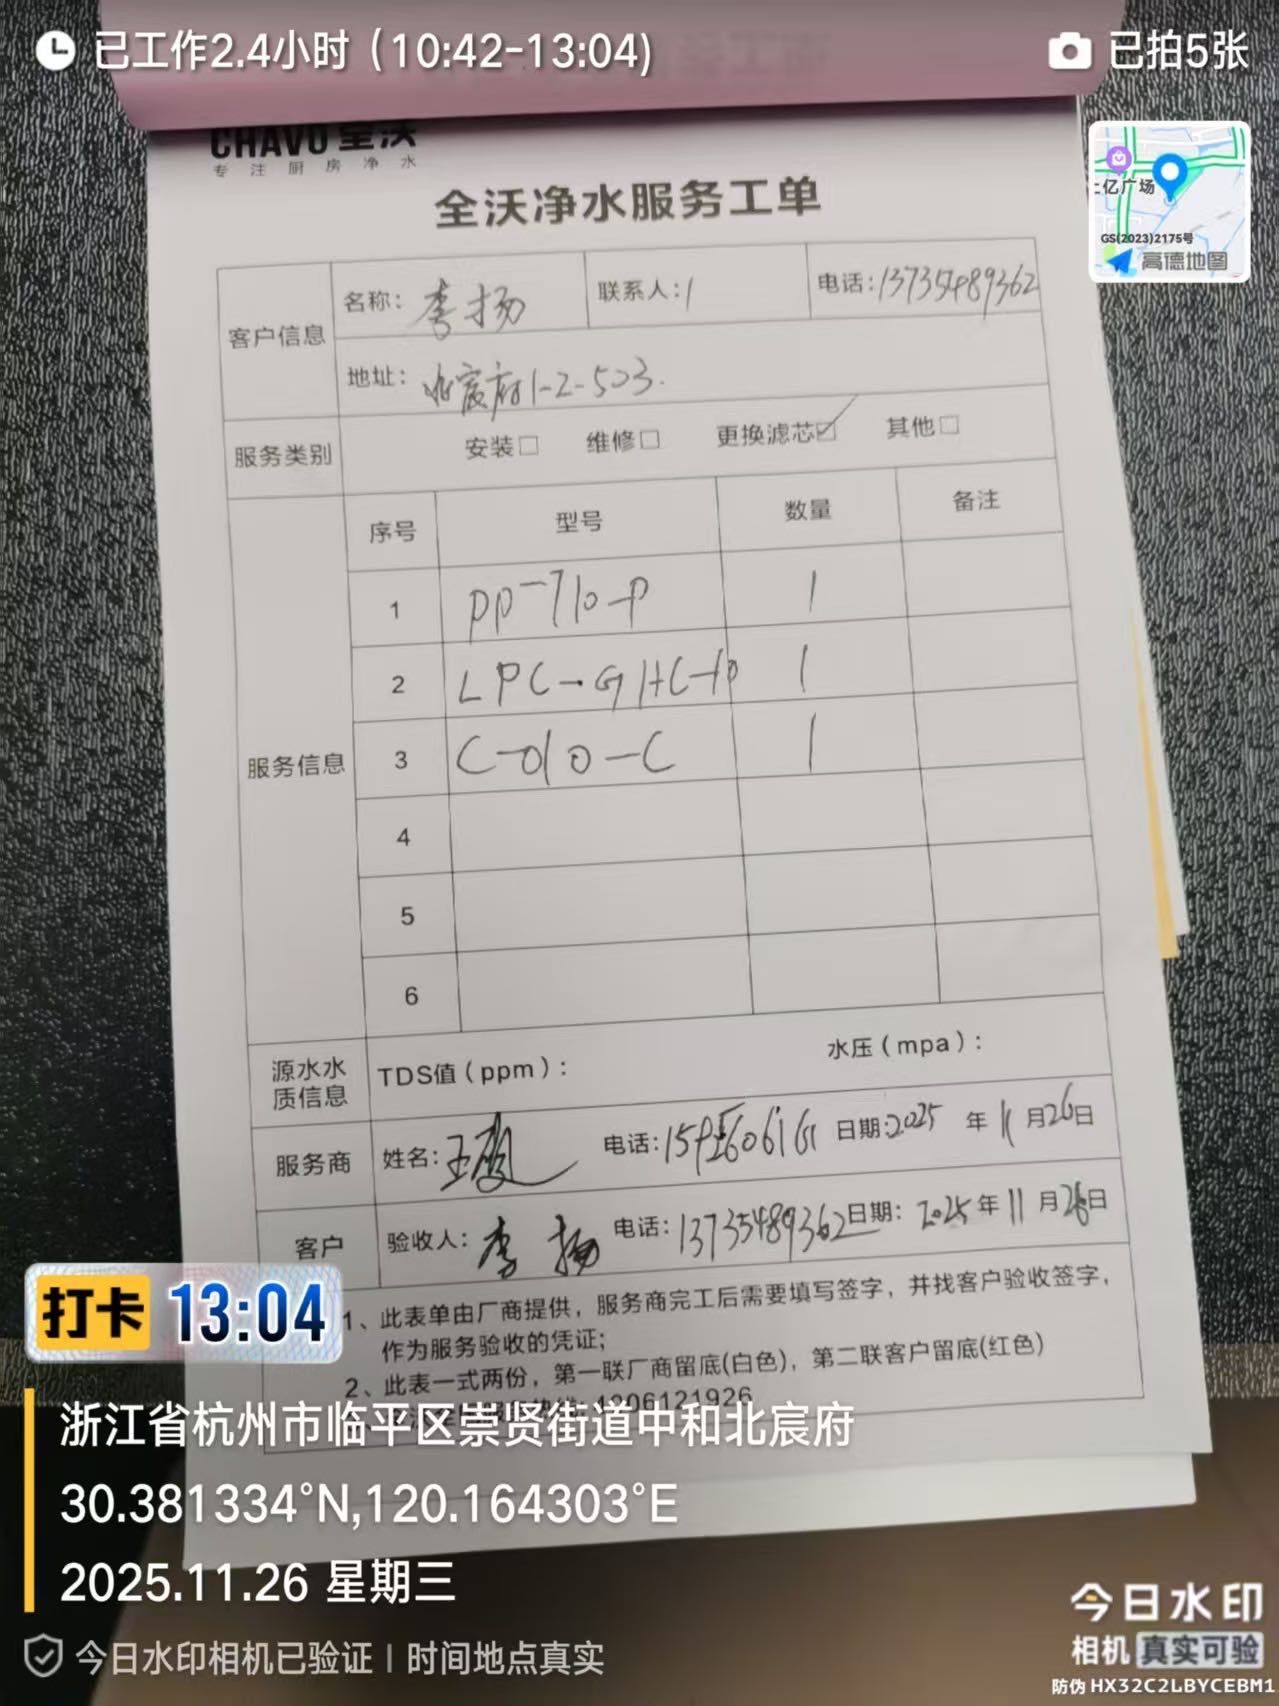 已工作2.4小时（10:42-13:04)
已拍5张
CHAVO 全沃
专注厨房净水
亿广场
GS(2023)2175号
高德地图
全沃净水服务工单
客户信息 名称：李扬 联系人：/ 电话：13735489362
地址：北宸府1-2-503.
服务类别 安装□ 维修□ 更换滤芯☑ 其他□
服务信息 序号 型号 数量 备注
1 PP-710-P 1
2 LPC-GHC-10 1
3 C-010-C 1
4
5
6
源水水质信息 TDS值（ppm）： 水压（mpa）：
服务商 姓名：王 电话： 日期：2025年11月26日
客户 验收人：李扬 电话：13735489362 日期：2025年11月26日
1、此表单由厂商提供，服务商完工后需要填写签字，并找客户验收签字，
作为服务验收的凭证；
2、此表一式两份，第一联厂商留底(白色)，第二联客户留底(红色)
打卡 13:04
浙江省杭州市临平区崇贤街道中和北宸府
30.381334°N,120.164303°E
2025.11.26 星期三
今日水印相机已验证 | 时间地点真实
今日水印
相机 真实可验
防伪 HX32C2LBYCEBM1